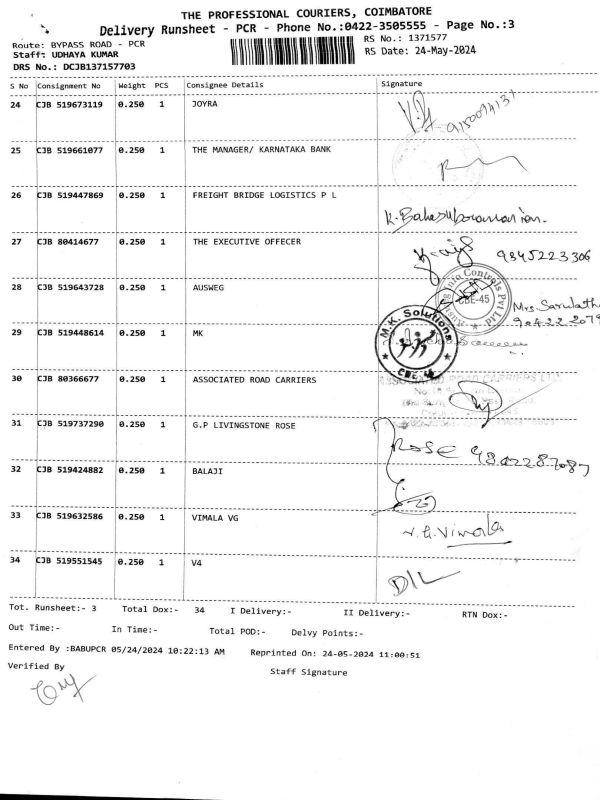 THE PROFESSIONAL COURIERS, COIMBATORE
Delivery Runsheet - PCR - Phone No.:0422-3505555 - Page No.:3
Route: BYPASS ROAD - PCR
RS No.: 1371577
Staff: UDHAYA KUMAR
RS Date: 24-May-2024
DRS No.: DCJB137157703
S No Consignment No Weight PCS Consignee Details Signature
24 CJB 519673119 0.250 1 JOYRA
25 CJB 519661077 0.250 1 THE MANAGER/ KARNATAKA BANK
26 CJB 519447869 0.250 1 FREIGHT BRIDGE LOGISTICS P L
K. Balasubramanian.
27 CJB 80414677 0.250 1 THE EXECUTIVE OFFECER
9345223306
28 CJB 519643728 0.250 1 AUSWEG
Controls Pvt Ltd
CBE-45
Mrs. Sarulatha
29 CJB 519448614 0.250 1 MK
M.K. Solutions
30 CJB 80366677 0.250 1 ASSOCIATED ROAD CARRIERS
ASSOCIATED ROAD CARRIERS LTD.
31 CJB 519737290 0.250 1 G.P LIVINGSTONE ROSE
ROSE 9842287087
32 CJB 519424882 0.250 1 BALAJI
33 CJB 519632586 0.250 1 VIMALA VG
V.G. Vimala
34 CJB 519551545 0.250 1 V4
D/L
Tot. Runsheet:- 3 Total Dox:- 34 I Delivery:- II Delivery:- RTN Dox:-
Out Time:- In Time:- Total POD:- Delvy Points:-
Entered By :BABUPCR 05/24/2024 10:22:13 AM Reprinted On: 24-05-2024 11:00:51
Verified By
Staff Signature